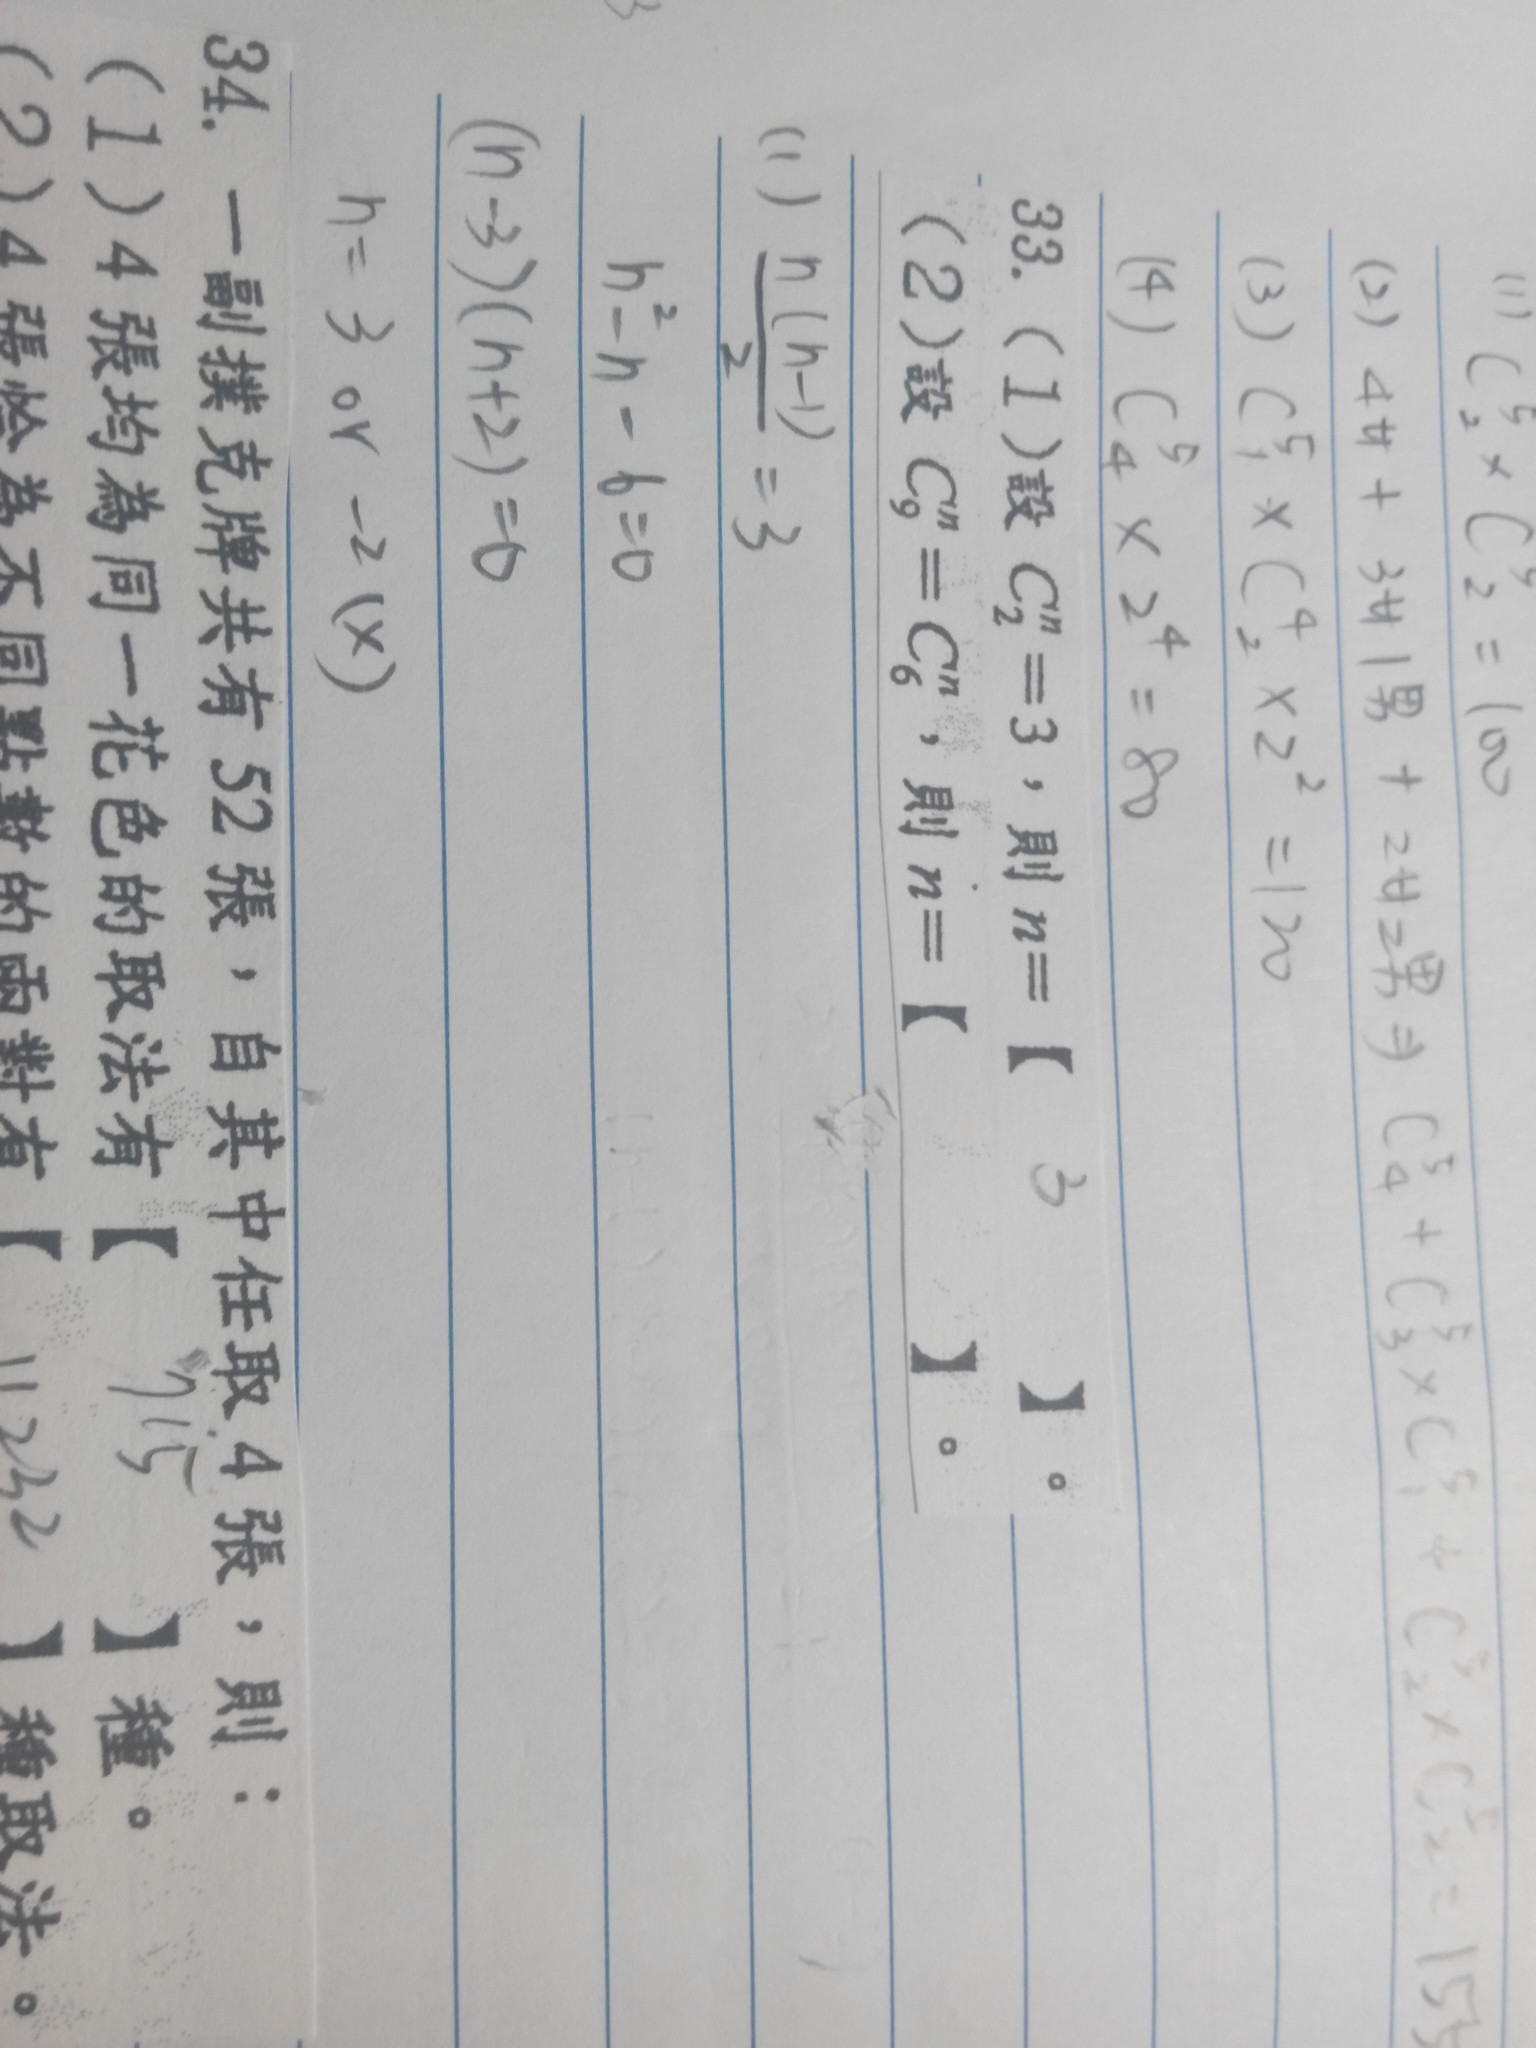 (1) C⁵₂ × C⁵₂ = 100
(2) 4女 + 3女1男 + 2女2男 ⇒ C⁵₄ + C⁵₃ × C⁵₁ + C⁵₂ × C⁵₂ = 155
(3) C⁵₁ × C⁴₂ × 2² = 120
(4) C⁵₄ × 2⁴ = 80
33. (1)設 Cⁿ₂=3，則 n=【 3 】。
(2)設 Cⁿ₉=Cⁿ₆，則 n=【 】。
(1) n(n-1)/2 = 3
n²-n-6=0
(n-3)(n+2)=0
n= 3 or -2 (x)
34. 一副撲克牌共有 52 張，自其中任取 4 張，則：
(1)4 張均為同一花色的取法有【 715 】種。
(2)4 張恰為不同點數的兩對有【 11232 】種取法。